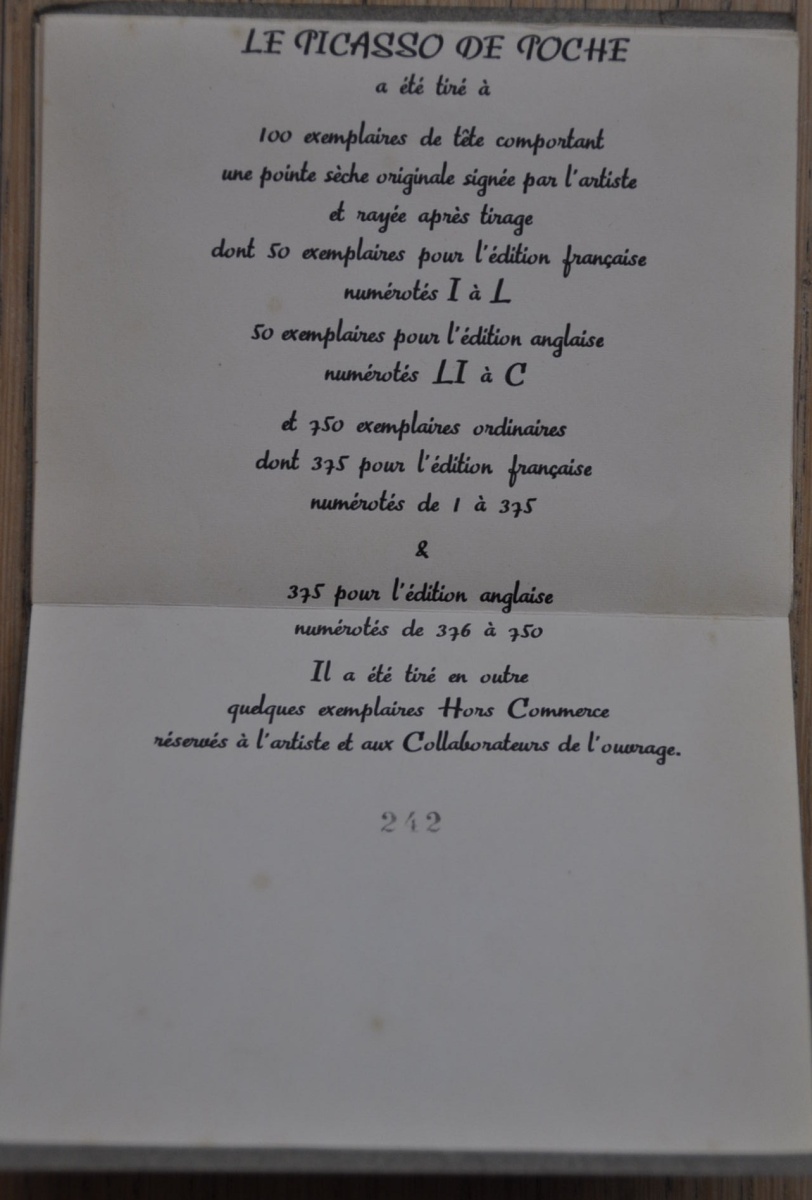 LE PICASSO DE POCHE
a été tiré à
100 exemplaires de tête comportant
une pointe sèche originale signée par l'artiste
et rayée après tirage
dont 50 exemplaires pour l'édition française
numérotés I à L
50 exemplaires pour l'édition anglaise
numérotés LI à C
et 750 exemplaires ordinaires
dont 375 pour l'édition française
numérotés de 1 à 375
&
375 pour l'édition anglaise
numérotés de 376 à 750
Il a été tiré en outre
quelques exemplaires Hors Commerce
réservés à l'artiste et aux Collaborateurs de l'ouvrage.
242